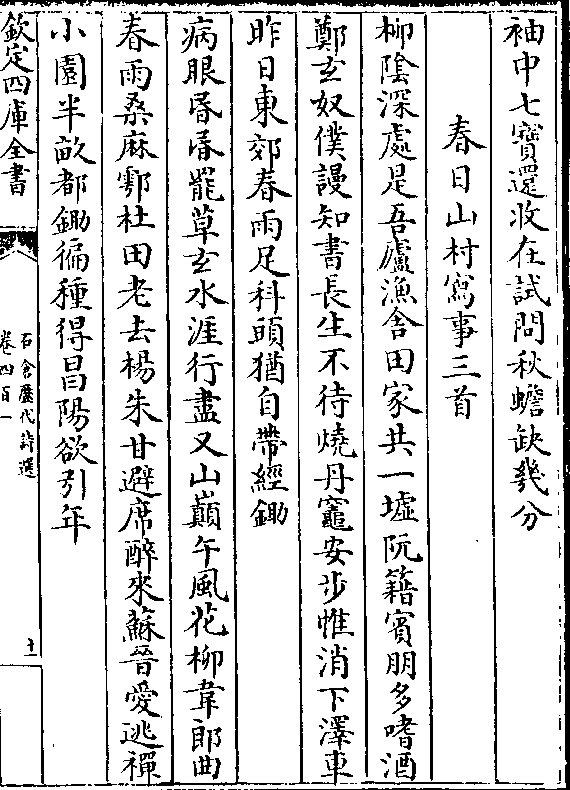 袖中七寳還收在試問秋蟾缺幾分
春日山村寫事三首
柳陰深處是吾廬漁舍田家共一墟阮籍賓朋多嗜酒
鄭𤣥奴僕謾知書長生不待燒丹竈安步惟消下澤車
昨日東郊春雨足科頭猶自帶經鋤
病眼昏昏罷草𤣥水涯行盡又山巔午風花柳韋郎曲
春雨桑麻鄠杜田老去楊朱甘避席醉來蘇晉愛逃禪
小園半畝都鋤徧種得昌陽欲引年
欽定四庫全書
石倉歷代詩選
卷四百一
十一